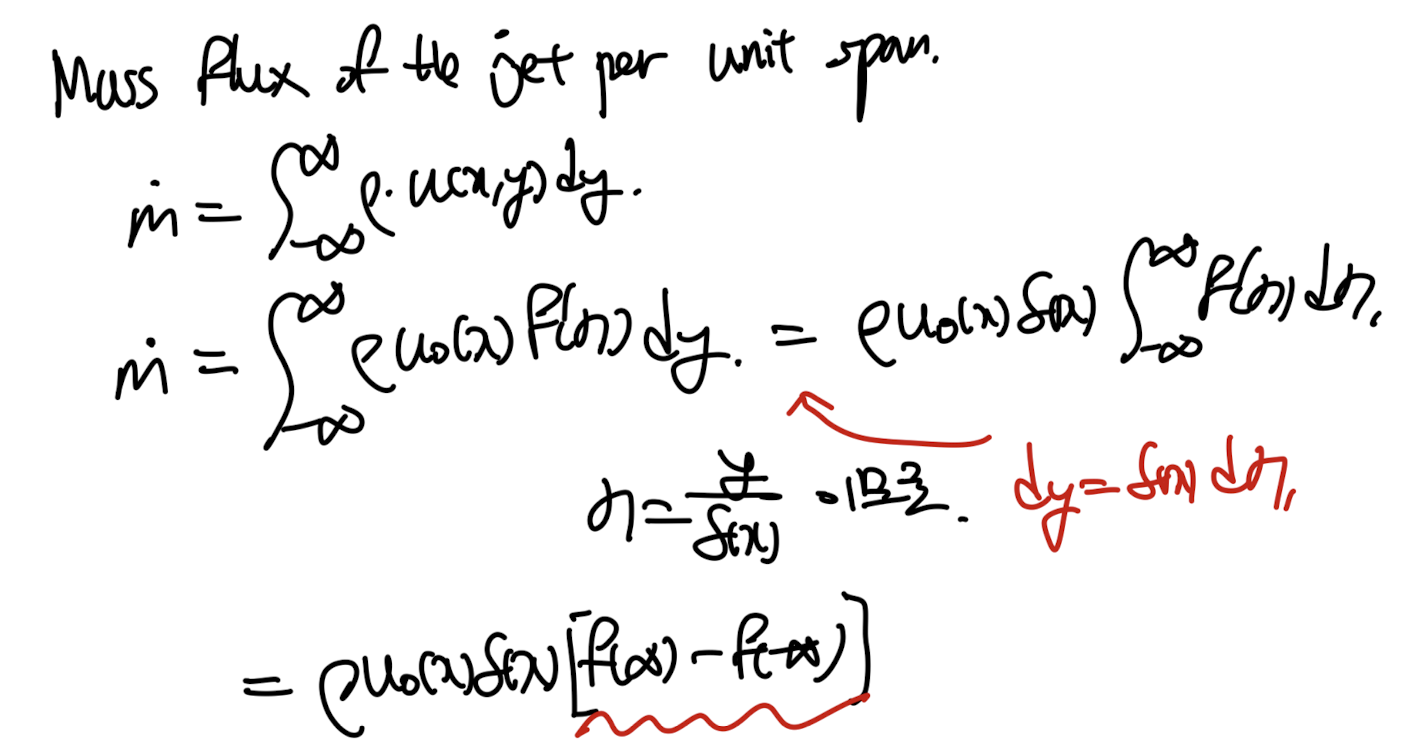 Mass flux of the jet per unit span.
ṁ = ∫_{-∞}^{∞} ρ· u(x,y) dy.
ṁ = ∫_{-∞}^{∞} ρ u₀(x) f(η) dy. = ρ u₀(x) δ(x) ∫_{-∞}^{∞} f(η) dη,
η = y/δ(x) 이므로. dy = δ(x) dη,
= ρ u₀(x) δ(x) [f(∞) - f(-∞)]